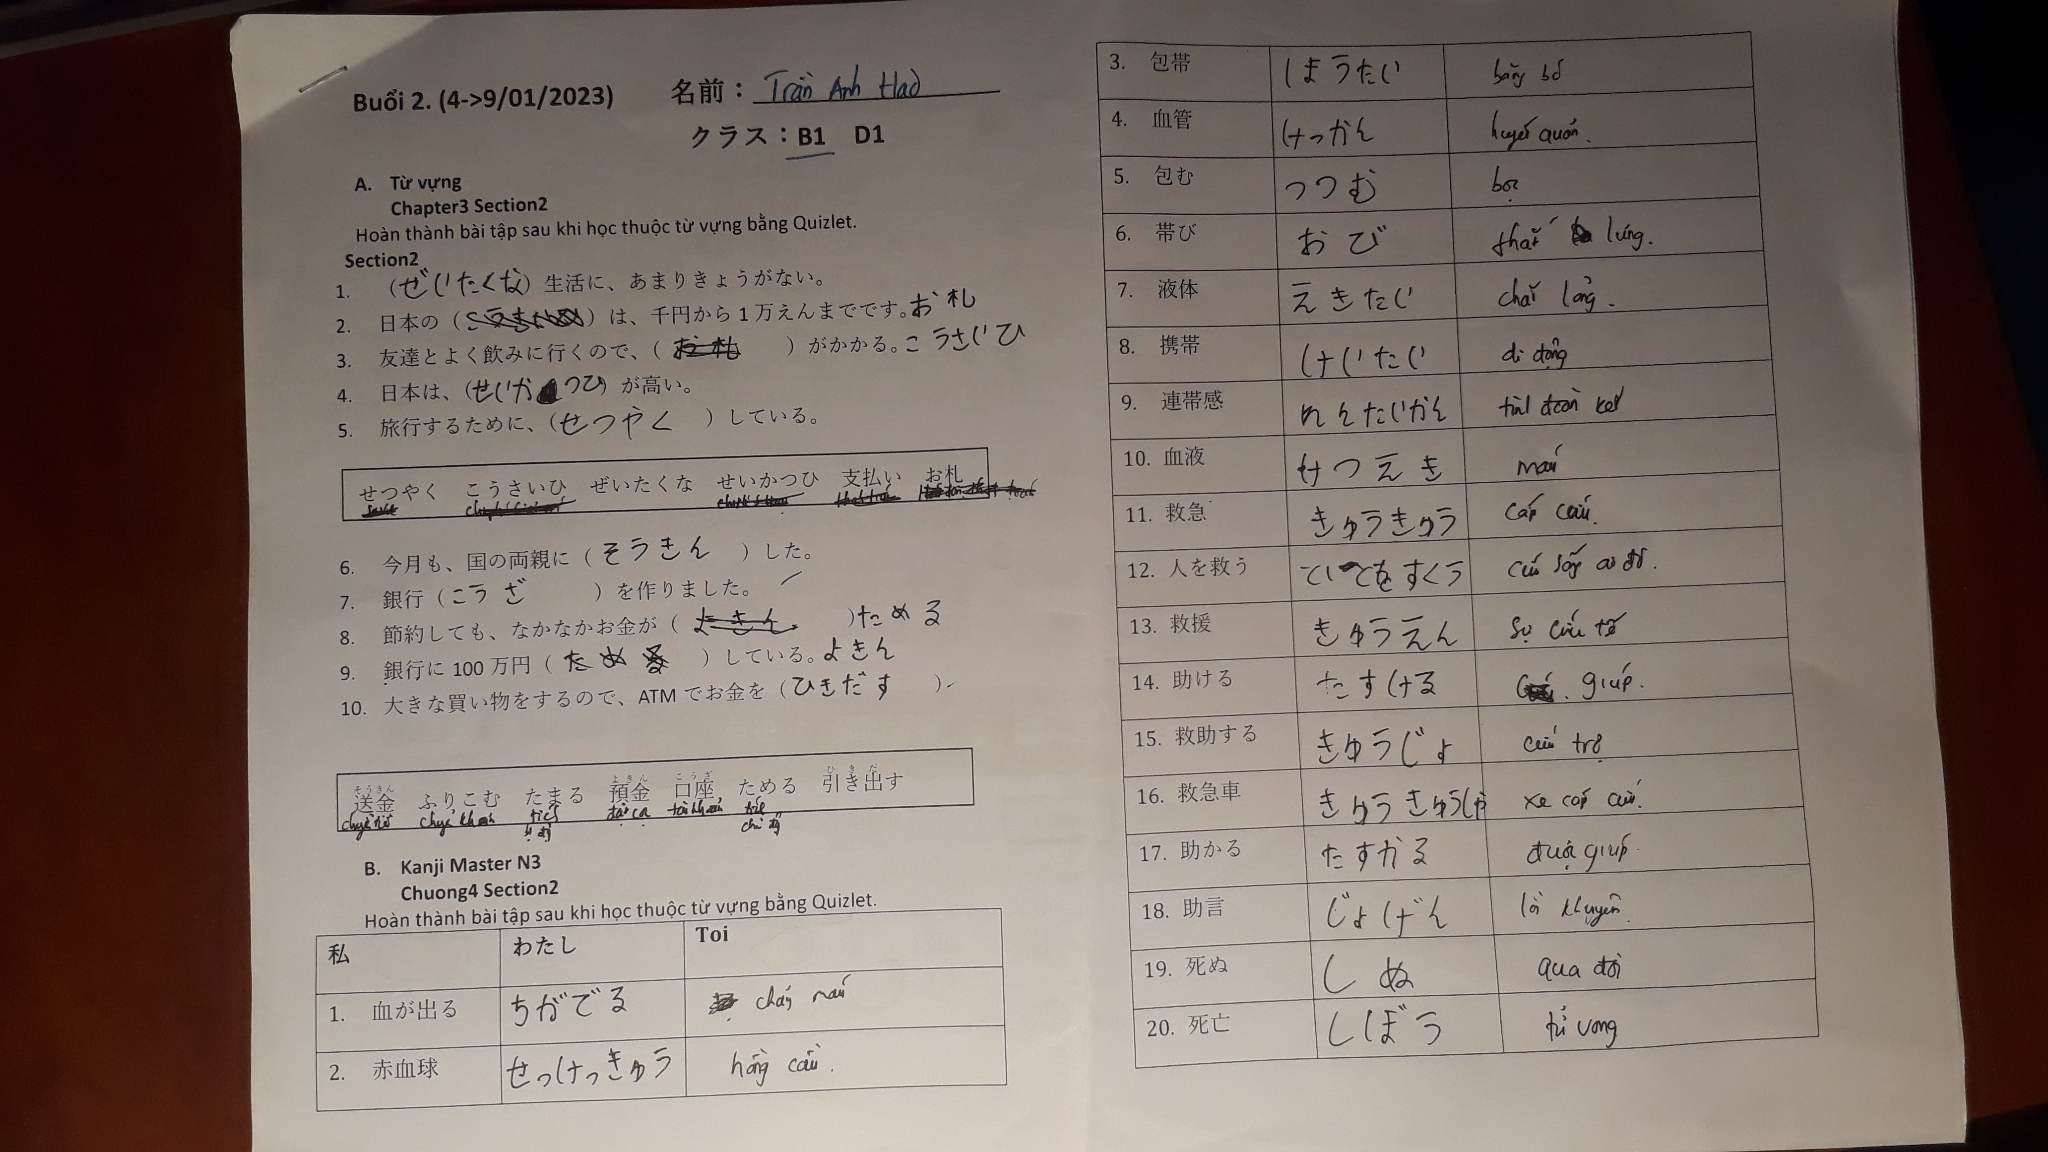 Buổi 2. (4->9/01/2023) 名前：Trần Anh Hao
クラス：B1 D1
A. Từ vựng
Chapter3 Section2
Hoàn thành bài tập sau khi học thuộc từ vựng bằng Quizlet.
Section2
1. （ぜいたくな）生活に、あまりきょうがない。
2. 日本の（）は、千円から１万えんまでです。お札
3. 友達とよく飲みに行くので、（お札）がかかる。こうさいひ
4. 日本は、（せいかつひ）が高い。
5. 旅行するために、（せつやく）している。
せつやく こうさいひ ぜいたくな せいかつひ 支払い お札
6. 今月も、国の両親に（そうきん）した。
7. 銀行（こうざ）を作りました。
8. 節約しても、なかなかお金が（よきん）ためる
9. 銀行に 100 万円（ためる）している。よきん
10. 大きな買い物をするので、ATM でお金を（ひきだす）
そうきん よきん こうざ ひ だ
送金 ふりこむ たまる 預金 口座 ためる 引き出す
B. Kanji Master N3
Chuong4 Section2
Hoàn thành bài tập sau khi học thuộc từ vựng bằng Quizlet.
私 わたし Toi
1. 血が出る ちがでる chảy máu
2. 赤血球 せっけっきゅう hồng cầu.
3. 包帯 しょうたい băng bó
4. 血管 けっかん huyết quản.
5. 包む つつむ bọc
6. 帯び おび thắt lưng.
7. 液体 えきたい chất lỏng.
8. 携帯 けいたい di động
9. 連帯感 れんたいかん tình đoàn kết
10. 血液 けつえき máu
11. 救急 きゅうきゅう cấp cứu.
12. 人を救う をすくう cứu sống ai đó.
13. 救援 きゅうえん sự cứu tế
14. 助ける たすける giúp.
15. 救助する きゅうじょ cứu trợ
16. 救急車 きゅうきゅうしゃ xe cấp cứu.
17. 助かる たすかる được giúp.
18. 助言 じょげん lời khuyên.
19. 死ぬ しぬ qua đời
20. 死亡 しぼう tử vong